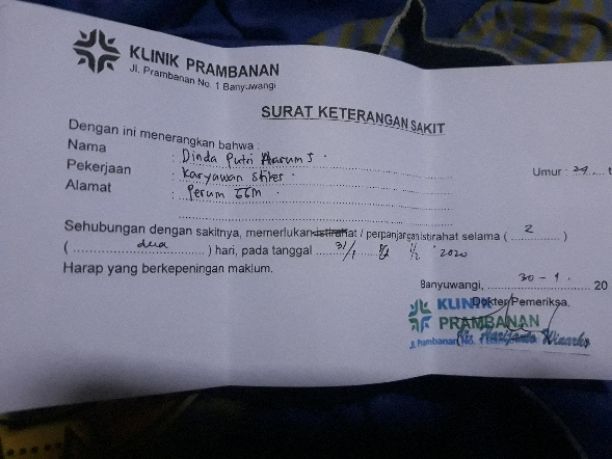 KLINIK PRAMBANAN
Jl. Prambanan No. 1 Banyuwangi
SURAT KETERANGAN SAKIT
Dengan ini menerangkan bahwa :
Nama : Dinda Putri Harum S
Umur : 29
Pekerjaan : Karyawan
Alamat : Perum
Sehubungan dengan sakitnya, memerlukan istirahat / perpanjangan istirahat selama ( 2 )
( dua ) hari, pada tanggal 31/1 2020
Harap yang berkepeningan maklum.
Banyuwangi, 30 - 1 . 20
Dokter Pemeriksa,
KLINIK
PRAMBANAN